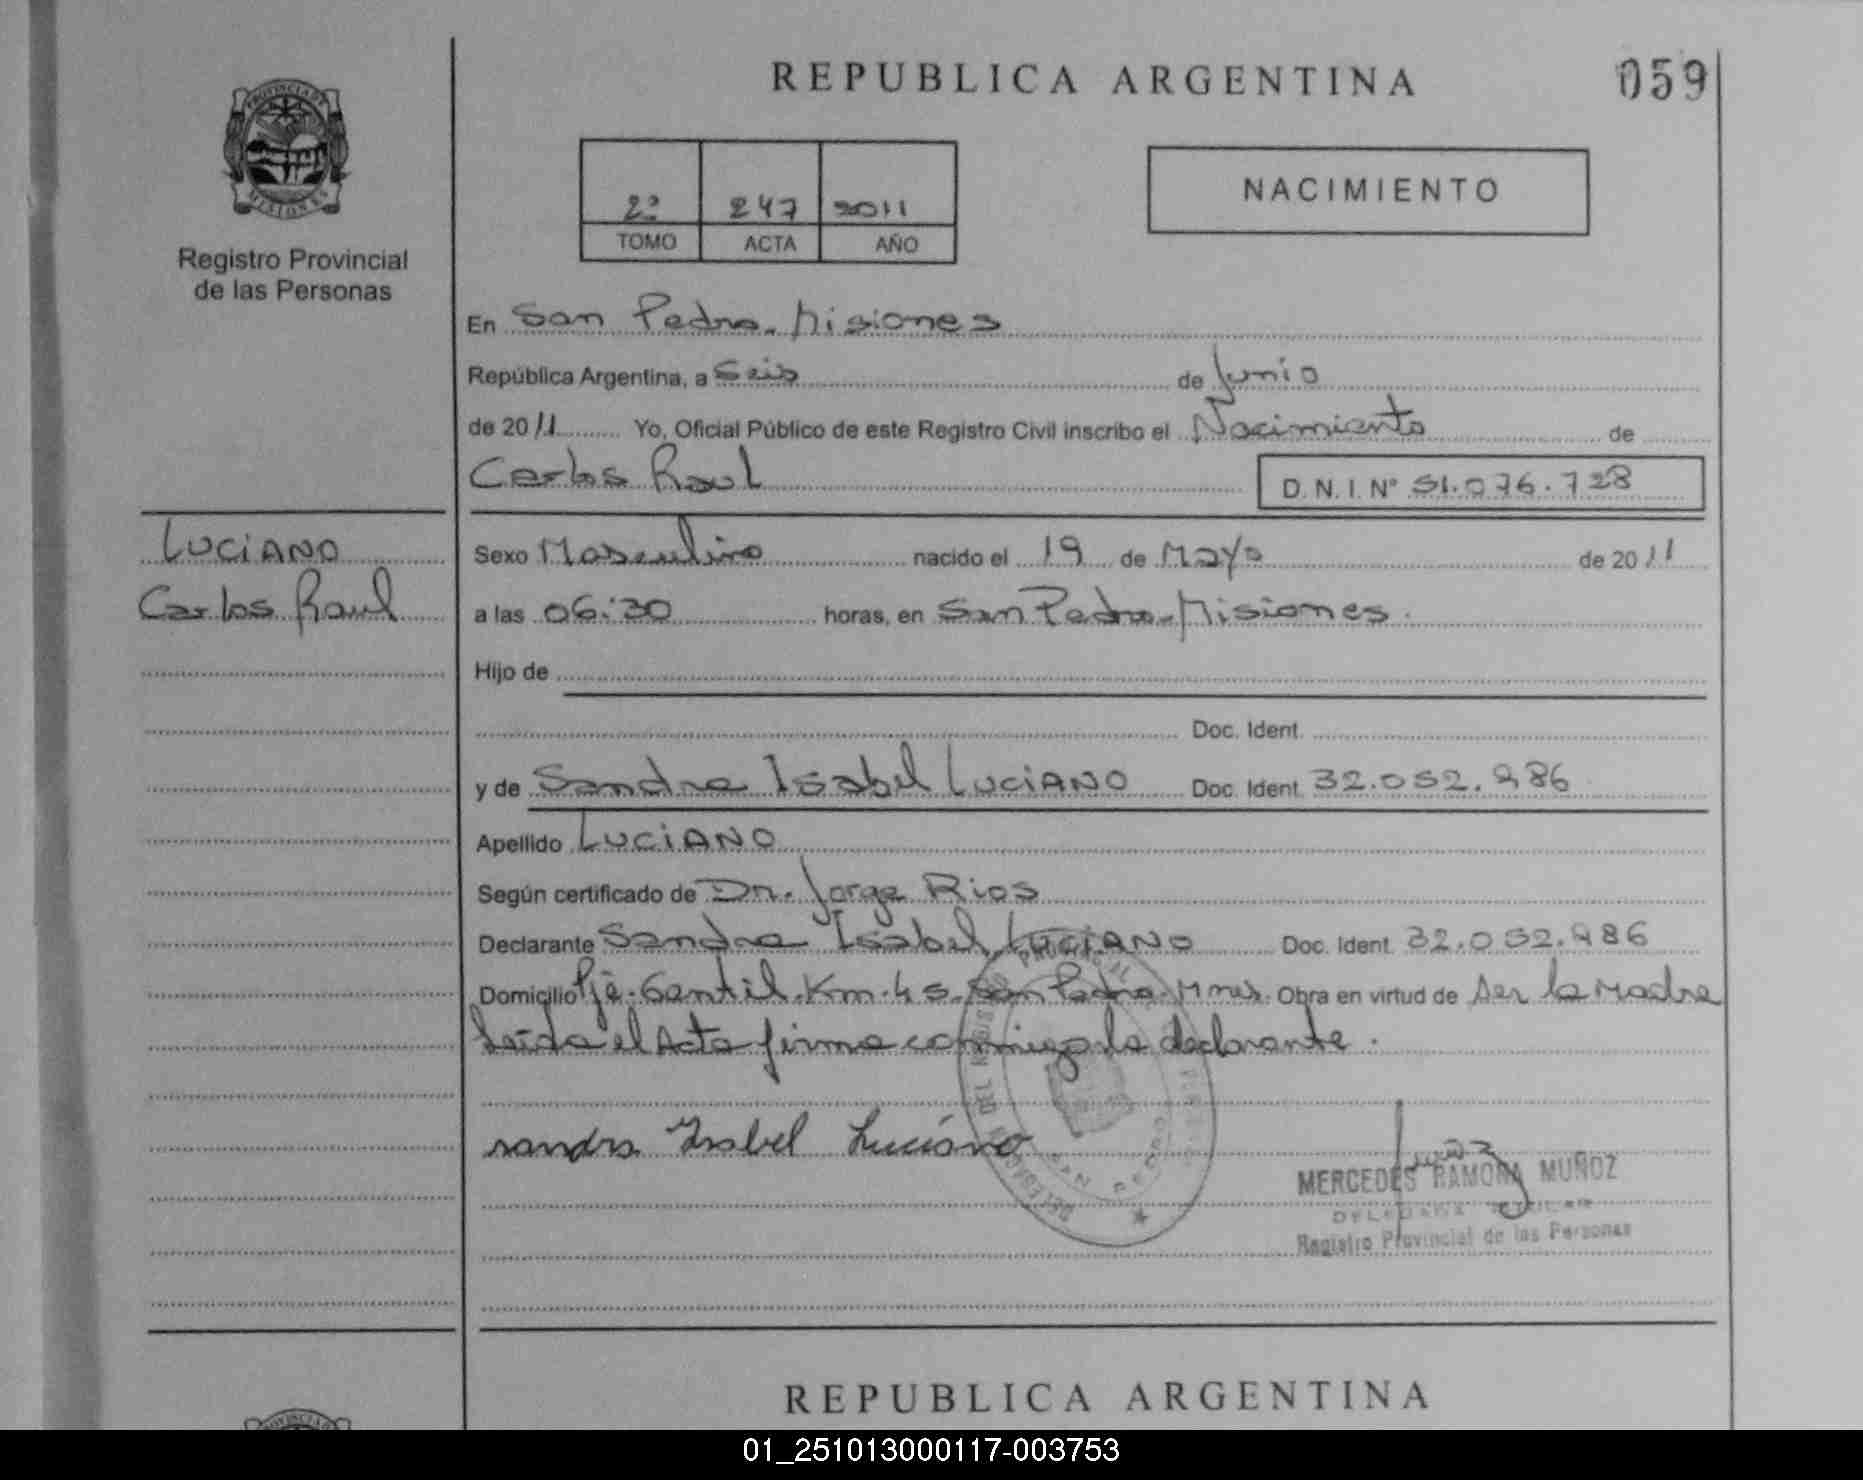 REPUBLICA ARGENTINA
059
PROVINCIA DE
MISIONES
Registro Provincial
de las Personas
2º 247 2011
TOMO ACTA AÑO
NACIMIENTO
En San Pedro. Misiones
República Argentina, a Seis de Junio
de 2011 Yo, Oficial Público de este Registro Civil inscribo el Nacimiento de
Carlos Raul D.N.I. Nº 51.076.728
LUCIANO
Carlos Raul
Sexo Masculino nacido el 19 de Mayo de 2011
a las 06:30 horas, en San Pedro. Misiones.
Hijo de
Doc. Ident.
y de Sandra Isabel LUCIANO Doc. Ident. 32.052.986
Apellido LUCIANO
Según certificado de Dr. Jorge Rios
Declarante Sandra Isabel LUCIANO Doc. Ident. 32.052.986
Domicilio Pje. Gentil. Km. 45. San Pedro. Mnes. Obra en virtud de ser la Madre
Leida el Acta firma conmigo la declarante.
sandra Isabel Luciano
MERCEDES RAMONA MUÑOZ
DELEGADA TITULAR
Registro Provincial de las Personas
REPUBLICA ARGENTINA
PROVINCIA DE
01_251013000117-003753